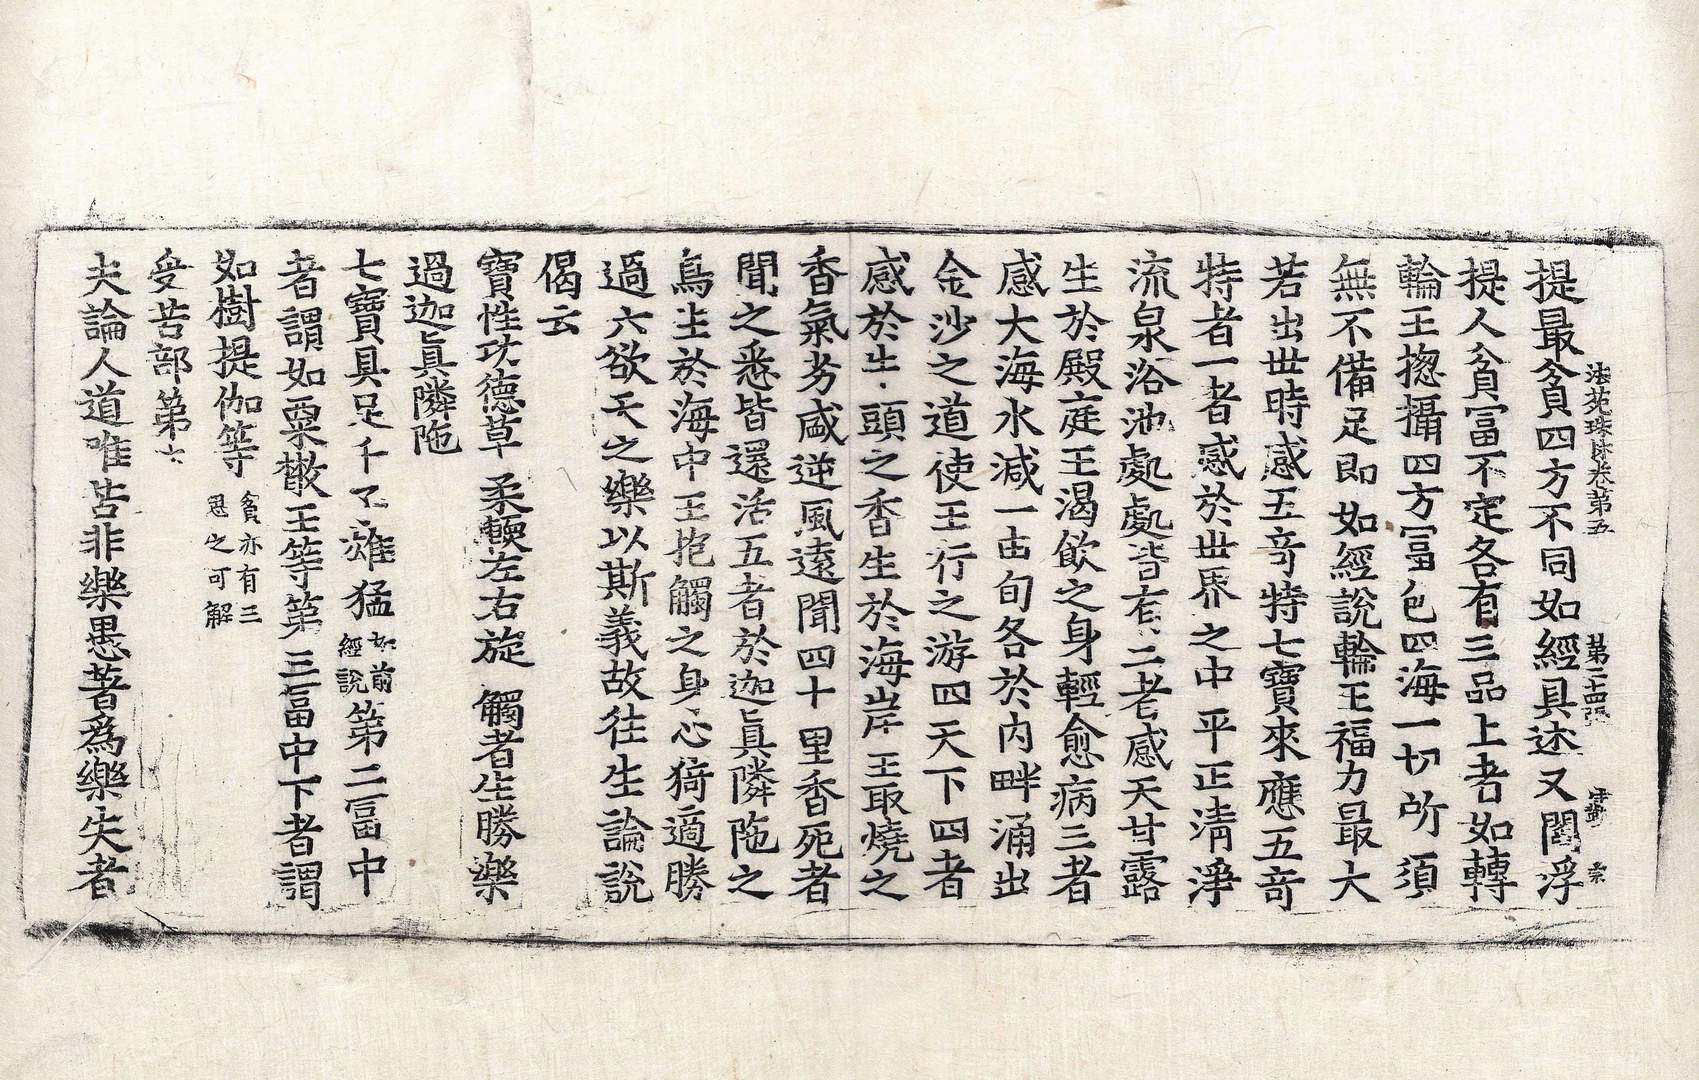 法苑珠林卷第五 第二十四張 宗
提最貧四方不同如經具述又閻浮
提人貧冨不定各有三品上者如轉
輪王揔攝四方冨包四海一切所須
無不備足即如經說輪王福力最大
若出世時感五竒特七寶來應五竒
特者一者感於世界之中平正清淨
流泉浴池處處皆有二者感天甘露
生於殿庭王渴飲之身輕愈病三者
感大海水減一由旬各於内畔涌出
金沙之道使王行之游四天下四者
感於牛頭之香生於海岸王取燒之
香氣芬盛逆風遠聞四十里香死者
聞之悉皆還活五者於迦真隣陁之
鳥生於海中王抱觸之身心猗適勝
過六欲天之樂以斯義故往生論說
偈云
寶性功德草 柔軟左右旋 觸者生勝樂
過迦真隣陁
七寶具足千子雄猛如前經說第二冨中
者謂如粟散王等第三冨中下者謂
如樹提伽等貧亦有三思之可解
受苦部第六
夫論人道唯苦非樂愚著為樂失者